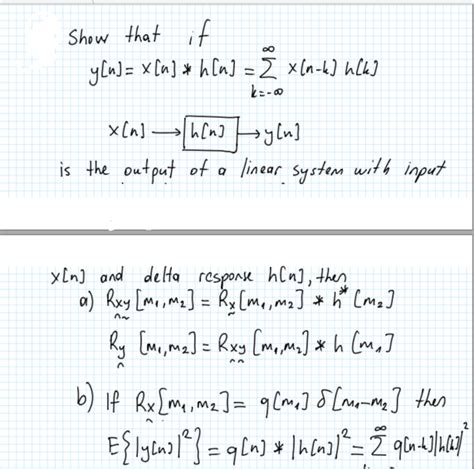 Show that if
y[n] = x[n] * h[n] = ∞ Σ k=-∞ x[n-k] h[k]
x[n] → h[n] → y[n]
is the output of a linear system with input
x[n] and delta response h[n], then
a) Rxy [m₁,m₂] = Rx [m₁,m₂] * h* [m₂]
Ry [m₁,m₂] = Rxy [m₁,m₂] * h [m₁]
b) If Rx [m₁,m₂] = q[m₁] δ[m₁-m₂] then
E{|y[n]|²} = q[n] * |h[n]|² = ∞ Σ q[n-k]|h[k]|²